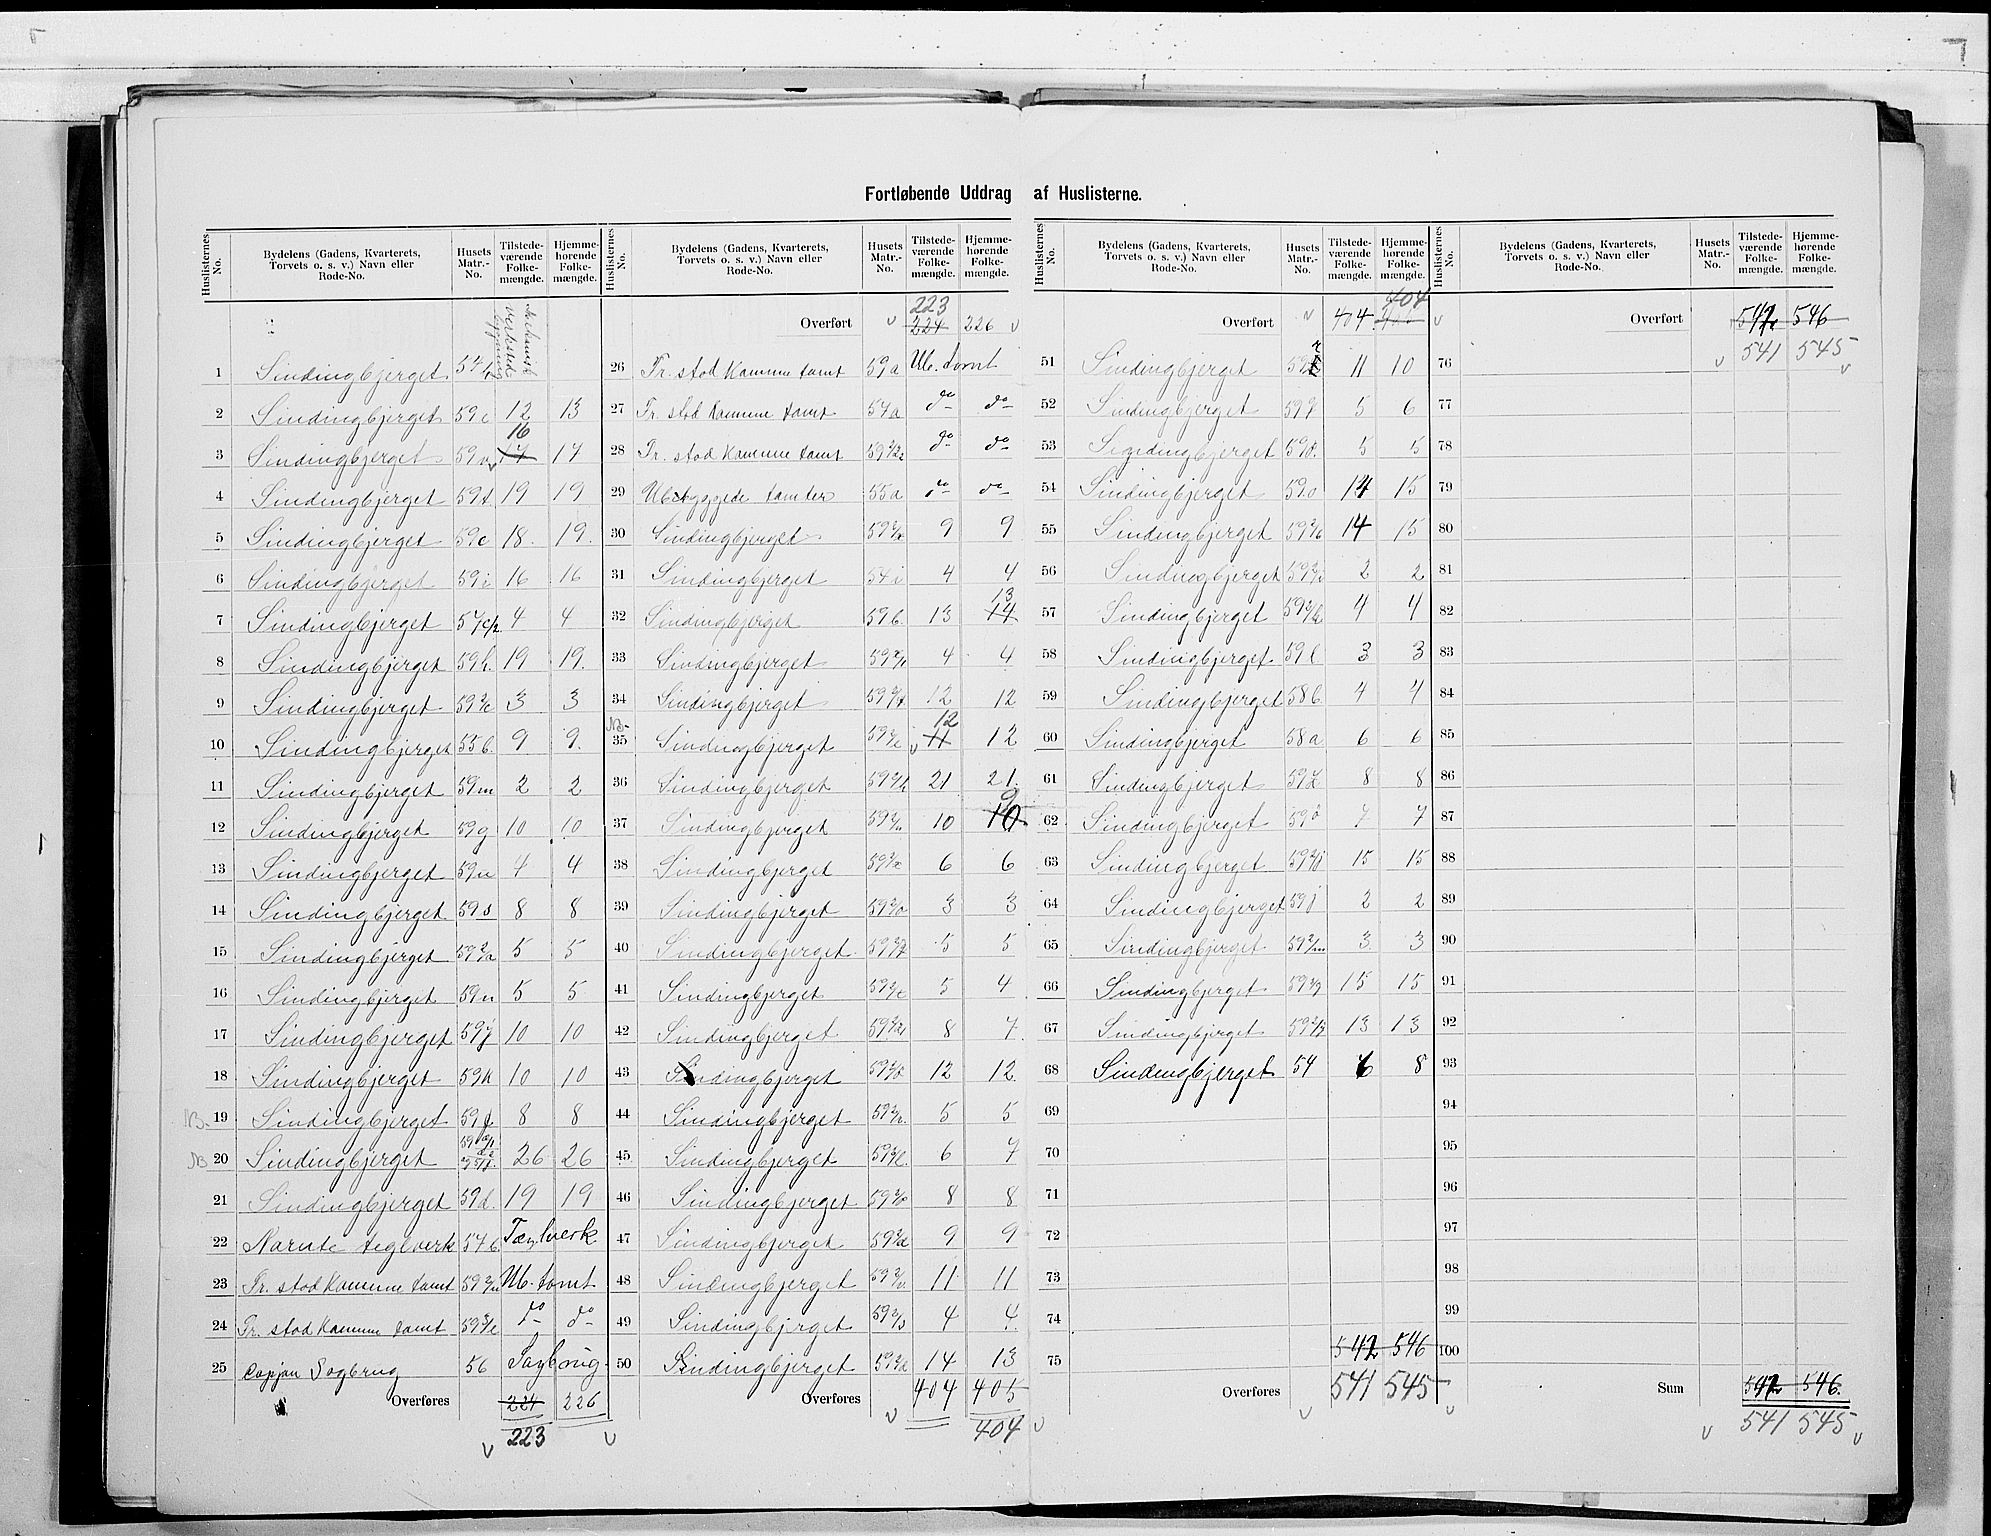 Fortløbende Uddrag af Huslisterne.
Huslisternes No. Bydelens (Gadens, Kvarterets, Torvets o. s. v.) Navn eller Rode-No. Husets Matr.-No. Tilstedeværende Folkemængde. Hjemmehørende Folkemængde.
1 Sindingbjerget
2 Sindingbjerget 59c 12 13
3 Sindingbjerget 17 16 17
4 Sindingbjerget 59t 19 19
5 Sindingbjerget 59e 18 19
6 Sindingbjerget 59i 16 16
7 Sindingbjerget 4 4
8 Sindingbjerget 59h. 19 19
9 Sindingbjerget 59 2/c 3 3
10 Sindingbjerget 55b. 9 9.
11 Sindingbjerget 59m 2 2
12 Sindingbjerget 59g 10 10
13 Sindingbjerget 4 4
14 Sindingbjerget 59s 8 8
15 Sindingbjerget 59 2/a 5 5
16 Sindingbjerget 59n 5 5
17 Sindingbjerget 59y 10 10
18 Sindingbjerget 59k 10 10
NB. 19 Sindingbjerget 59f 8 8
NB 20 Sindingbjerget 26 26
21 Sindingbjerget 59d. 19 19
22 teglverk 54b.
23 Tr. stod Kamune tomt Ub. tomt
24 Tr. stod Kamune tomt do do
25 Sagbrug 56 Sagbrug
Overføres 224 226
223
Huslisternes No. Bydelens (Gadens, Kvarterets, Torvets o. s. v.) Navn eller Rode-No. Husets Matr.-No. Tilstedeværende Folkemængde. Hjemmehørende Folkemængde.
223
Overført 224 226
26 Tr. stod Kamune tomt 59a Ub. tomt
27 Tr. stod Kamune tomt 54a do do
28 Tr. stod Kamune tomt do do
29 Ubebyggede tomter 55a do do
30 Sindingbjerget 9 9
31 Sindingbjerget 54i 4 4
32 Sindingbjerget 59b. 13 14 13
33 Sindingbjerget 59 2/r 4 4
34 Sindingbjerget 12 12
NB. 35 Sindingbjerget 11 12 12
36 Sindingbjerget 59 2/h 21 21
37 Sindingbjerget 10 10 9
38 Sindingbjerget 6 6
39 Sindingbjerget 59 2/o 3 3
40 Sindingbjerget 5 5
41 Sindingbjerget 5 4
42 Sindingbjerget 8 7
43 Sindingbjerget 12 12
44 Sindingbjerget 5 5
45 Sindingbjerget 6 7
46 Sindingbjerget 8 8
47 Sindingbjerget 59 2/d 9 9
48 Sindingbjerget 11 11
49 Sindingbjerget 59 2/s 4 4
50 Sindingbjerget 14 13
Overføres 404 405
404
Huslisternes No. Bydelens (Gadens, Kvarterets, Torvets o. s. v.) Navn eller Rode-No. Husets Matr.-No. Tilstedeværende Folkemængde. Hjemmehørende Folkemængde.
404
Overført 404
51 Sindingbjerget 11 10
52 Sindingbjerget 59q 5 6
53 Sindingbjerget 5 5
54 Sindingbjerget 59o 14 15
55 Sindingbjerget 59 2/b 14 15
56 Sindingbjerget 2 2
57 Sindingbjerget 4 4
58 Sindingbjerget 59l 3 3
59 Sindingbjerget 58b 4 4
60 Sindingbjerget 58a 6 6
61 Sindingbjerget 8 8
62 Sindingbjerget 59ö 7 7
63 Sindingbjerget 15 15
64 Sindingbjerget 59j 2 2
65 Sindingbjerget 59 2/m 3 3
66 Sindingbjerget 59 2/g 15 15
67 Sindingbjerget 13 13
68 Sindingbjerget 54 6 8
69
70
71
72
73
74
542 546
75
Overføres 541 545
Huslisternes No. Bydelens (Gadens, Kvarterets, Torvets o. s. v.) Navn eller Rode-No. Husets Matr.-No. Tilstedeværende Folkemængde. Hjemmehørende Folkemængde.
Overført 542 546
541 545
76
77
78
79
80
81
82
83
84
85
86
87
88
89
90
91
92
93
94
95
96
97
98
99
100
Sum 542 546.
541 545